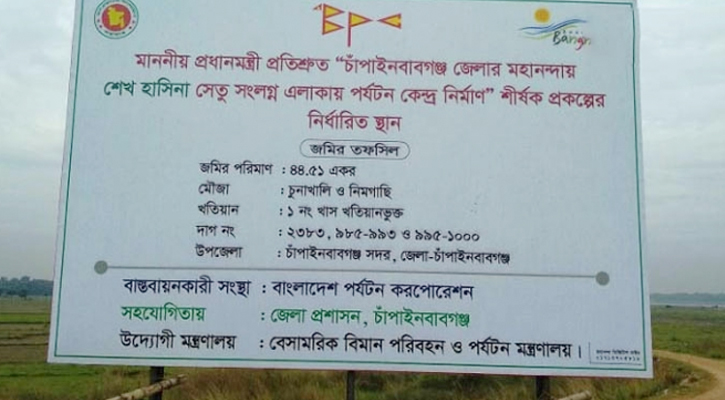 BPC
মাননীয় প্রধানমন্ত্রী প্রতিশ্রুত “চাঁপাইনবাবগঞ্জ জেলার মহানন্দায়
শেখ হাসিনা সেতু সংলগ্ন এলাকায় পর্যটন কেন্দ্র নির্মাণ” শীর্ষক প্রকল্পের
নির্ধারিত স্থান
জমির তফসিল
জমির পরিমাণ : ৪৪.৫১ একর
মৌজা : চুনাখালি ও নিমগাছি
খতিয়ান : ১ নং খাস খতিয়ানভুক্ত
দাগ নং : ২৩৮৩, ৯৮৫-৯৯৩ ও ৯৯৫-১০০০
উপজেলা : চাঁপাইনবাবগঞ্জ সদর, জেলা-চাঁপাইনবাবগঞ্জ
বাস্তবায়নকারী সংস্থা : বাংলাদেশ পর্যটন করপোরেশন
সহযোগিতায় : জেলা প্রশাসন, চাঁপাইনবাবগঞ্জ
উদ্যোগী মন্ত্রণালয় : বেসামরিক বিমান পরিবহন ও পর্যটন মন্ত্রণালয়।